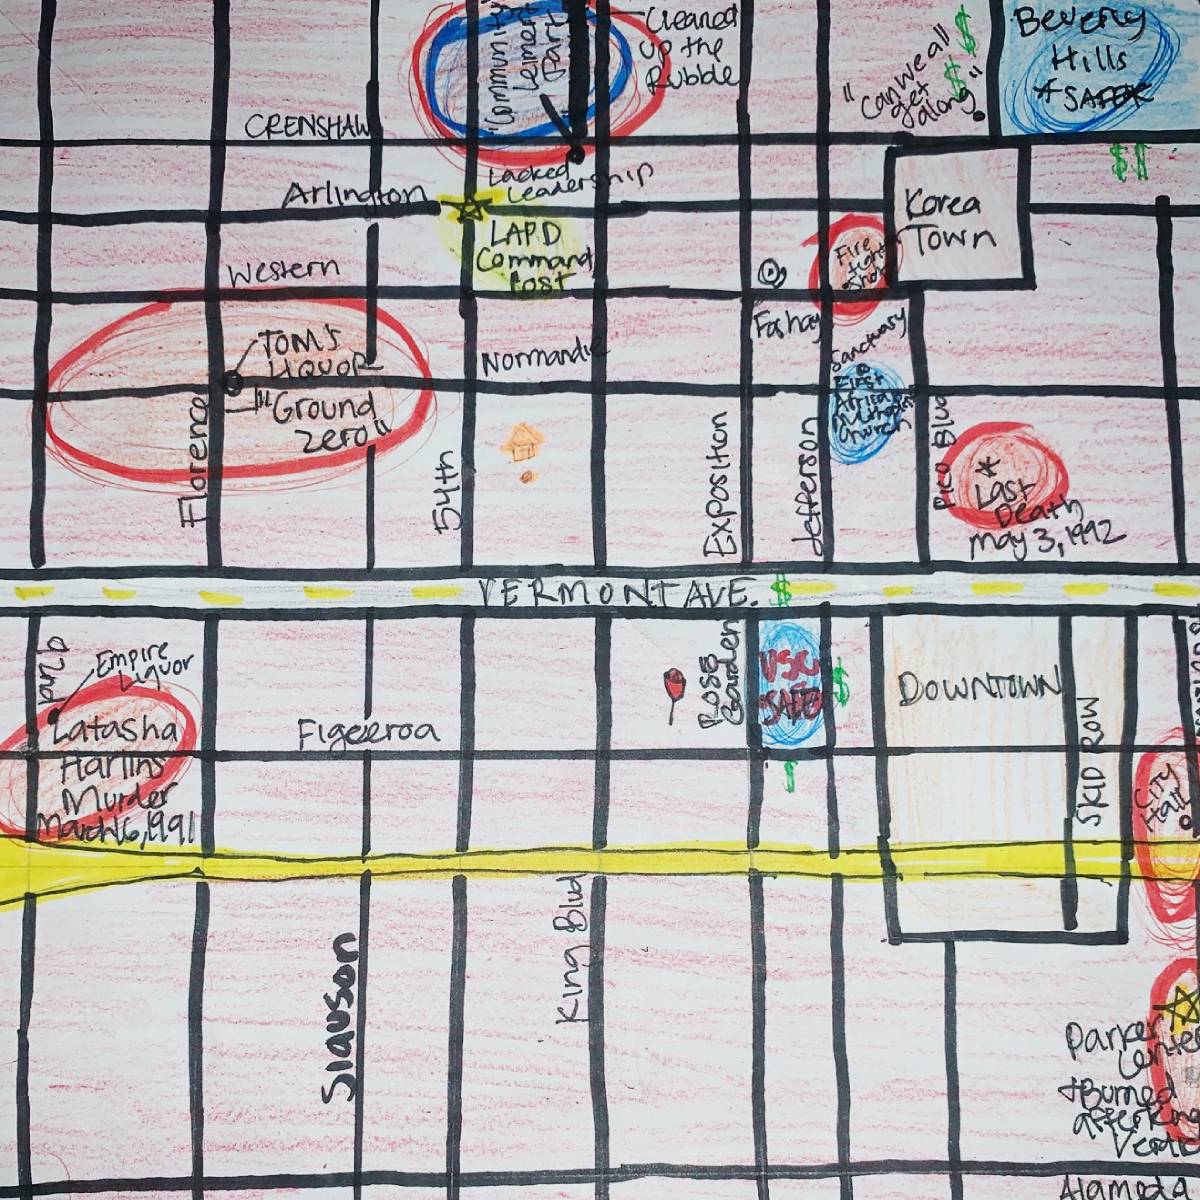 Community
Leimert
Park
Cleaned
up the
Rubble
"Can we all
get
along"
$
$
$
Beverly
Hills
*SAFE*
CRENSHAW
$1
Lacked
Leadership
Arlington
Korea
Town
LAPD
Command
Post
Fire
Western
Foshay
Sanctuary
First
Africa
Church
TOM'S
LIQUOR
"Ground
Zero"
Normandie
Florence
54th
Exposition
Jefferson
Pico Blvd
*
Last
Death
may 3, 1992
VERMONT AVE.
$
92nd
Empire
Liquor
Latasha
Harlins
Murder
March 16, 1991
Figeeroa
Rose
Garden
USC
SAFE
$
$
DOWNTOWN
SKID ROW
City
Hall
Slauson
King Blvd
Parker
Center
+Burned
after King
Verdic
Alameda